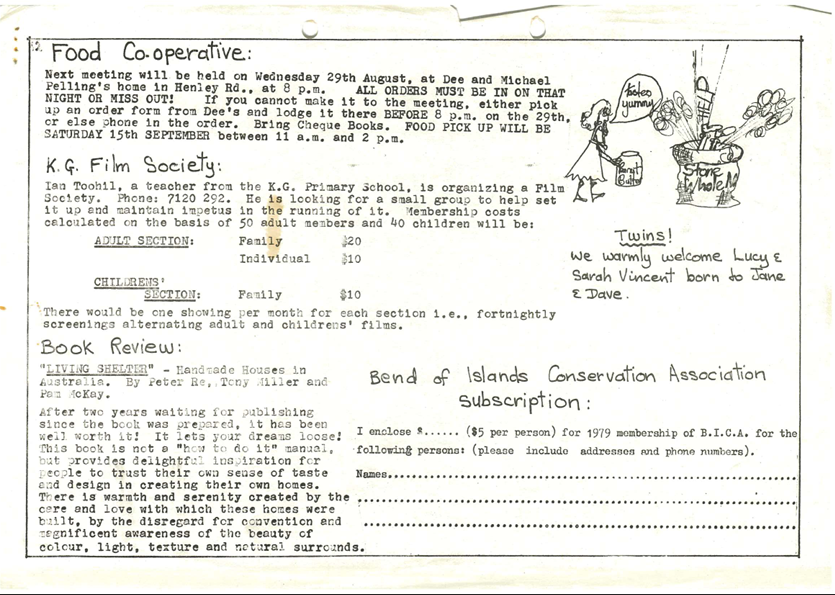 12.
Food Co-operative:
Next meeting will be held on Wednesday 29th August, at Dee and Michael
Pelling's home in Henley Rd., at 8 p.m. ALL ORDERS MUST BE IN ON THAT
NIGHT OR MISS OUT! If you cannot make it to the meeting, either pick
up an order form from Dee's and lodge it there BEFORE 8 p.m. on the 29th,
or else phone in the order. Bring Cheque Books. FOOD PICK UP WILL BE
SATURDAY 15th SEPTEMBER between 11 a.m. and 2 p.m.
yummy
HELP
Peanut
Butter
Stone
K.G. Film Society:
Ian Toohil, a teacher from the K.G. Primary School, is organizing a Film
Society. Phone: 7120 292. He is looking for a small group to help set
it up and maintain impetus in the running of it. Membership costs
calculated on the basis of 50 adult members and 40 children will be:
ADULT SECTION: Family $20
Individual $10
CHILDRENS'
SECTION: Family $10
There would be one showing per month for each section i.e., fortnightly
screenings alternating adult and childrens' films.
Twins!
We warmly welcome Lucy &
Sarah Vincent born to Jane
& Dave.
Book Review:
"LIVING SHELTER" - Handmade Houses in
Australia. By Peter Re, Tony Miller and
Pam McKay.
After two years waiting for publishing
since the book was prepared, it has been
well worth it! It lets your dreams loose!
This book is not a "how to do it" manual,
but provides delightful inspiration for
people to trust their own sense of taste
and design in creating their own homes.
There is warmth and serenity created by the
care and love with which these homes were
built, by the disregard for convention and
magnificent awareness of the beauty of
colour, light, texture and natural surrounds.
Bend of Islands Conservation Association
Subscription:
I enclose $...... ($5 per person) for 1979 membership of B.I.C.A. for the
following persons: (please include addresses and phone numbers).
Names...............................................................
....................................................................
....................................................................